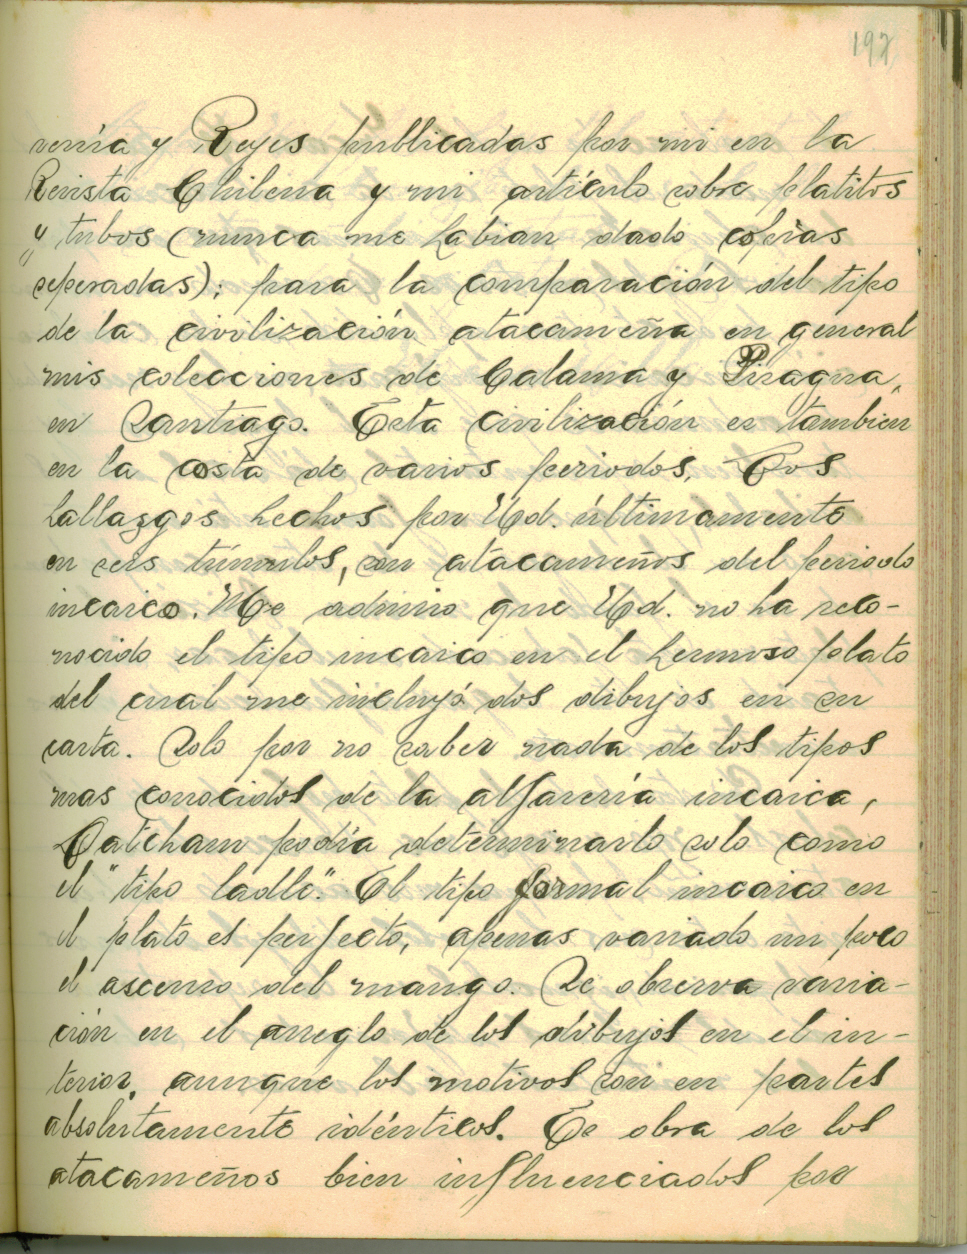 197
venía y Reyes publicadas por mi en la
Revista Chilena y mi artículo sobre platitos
y tubos (nunca me habian dado copias
seperadas); para la comparación del tipo
de la civilización atacameña en general
mis colecciones de Calama y Pisagua,
en Santiago. Esta civilización es tambien
en la costa de varios periodos. Los
hallazgos hechos por Ud. últimamente
en seis túmulos, son atacameños del periodo
incaico. Me admiro que Ud. no ha reco-
nocido el tipo incaico en el hermoso plato
del cual me incluyó dos dibujos en su
carta. Solo por no saber nada de los tipos
mas conocidos de la alfarería incaica,
Latcham podía determinarlo solo como
el "tipo ladle". El tipo formal incaico en
el plato es perfecto, apenas variado un poco
el ascenso del mango. Se observa varia-
ción en el arreglo de los dibujos en el in-
terior, aunque los motivos son en partes
absolutamente idénticos. Es obra de los
atacameños bien influenciados por